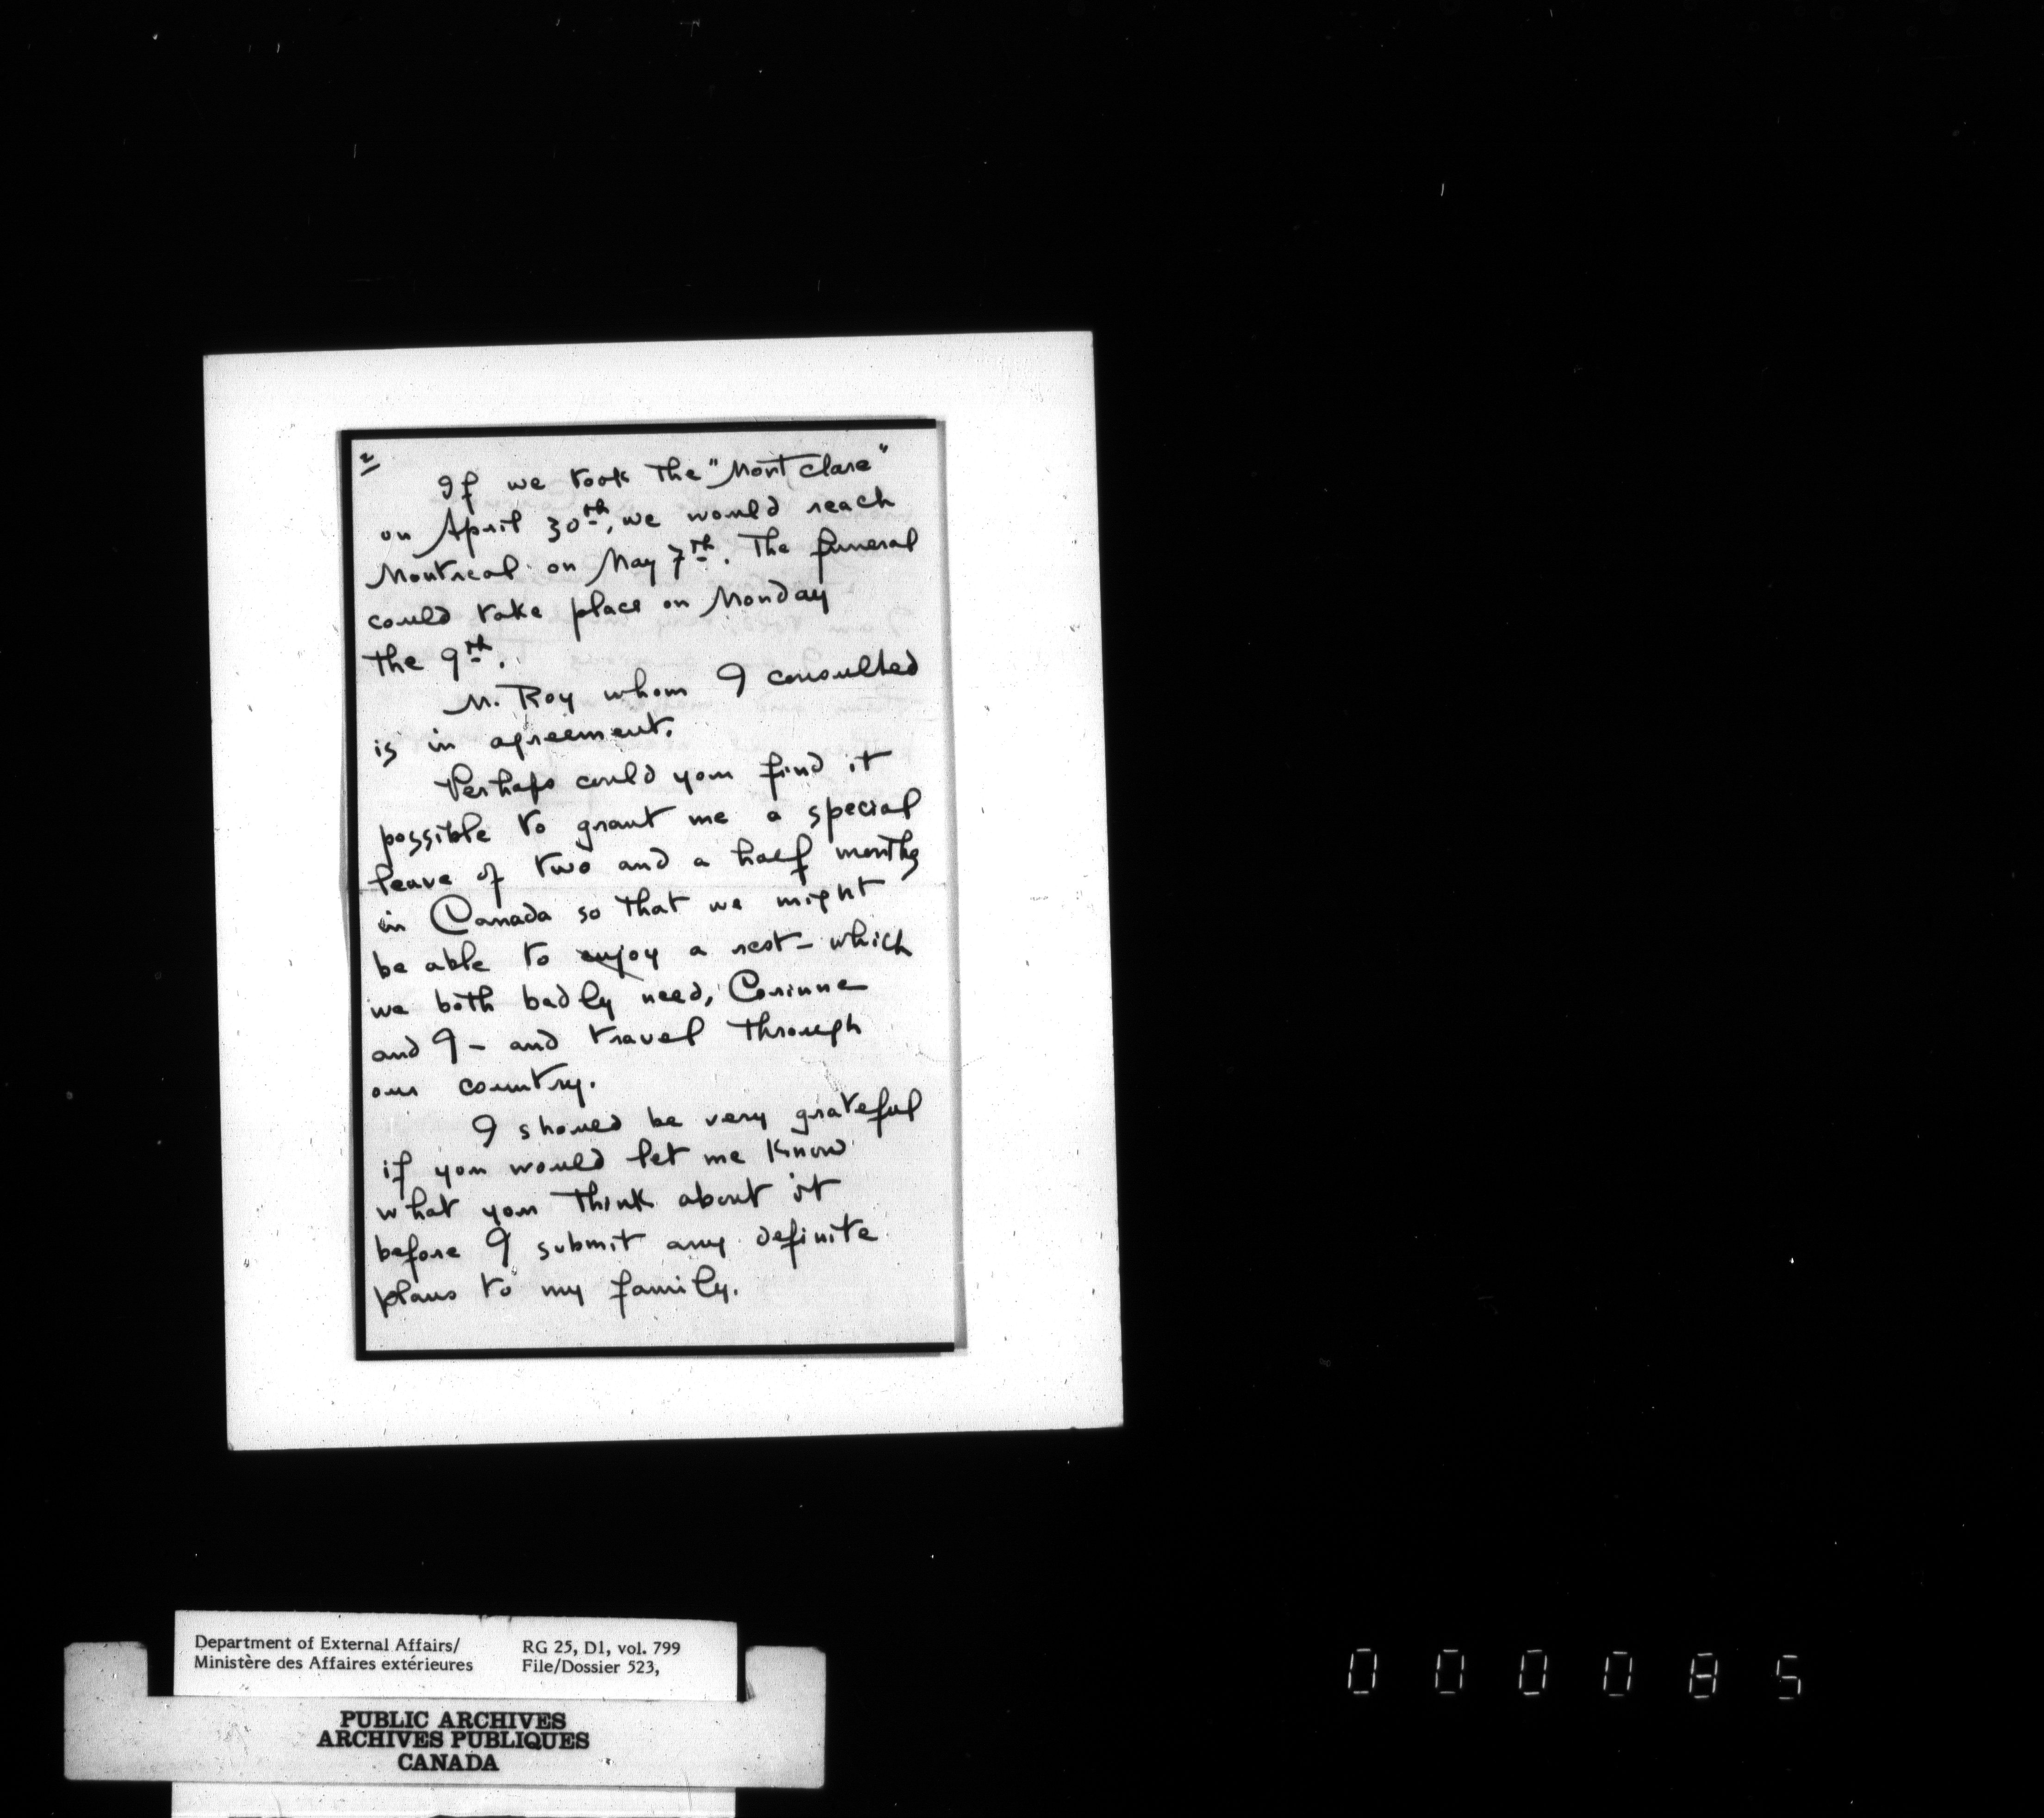 2
If we took the "Montclare"
on April 30th, we would reach
Montreal on May 7th. The funeral
could take place on Monday
the 9th.
M. Roy whom I consulted
is in agreement.
Perhaps could you find it
possible to grant me a special
leave of two and a half months
in Canada so that we might
be able to enjoy a rest - which
we both badly need, Corinne
and I - and travel through
our country.
I should be very grateful
if you would let me know
what you think about it
before I submit any definite
plans to my family.
Department of External Affairs/ RG 25, D1, vol. 799
Ministère des Affaires extérieures File/Dossier 523,
PUBLIC ARCHIVES
ARCHIVES PUBLIQUES
CANADA
000085